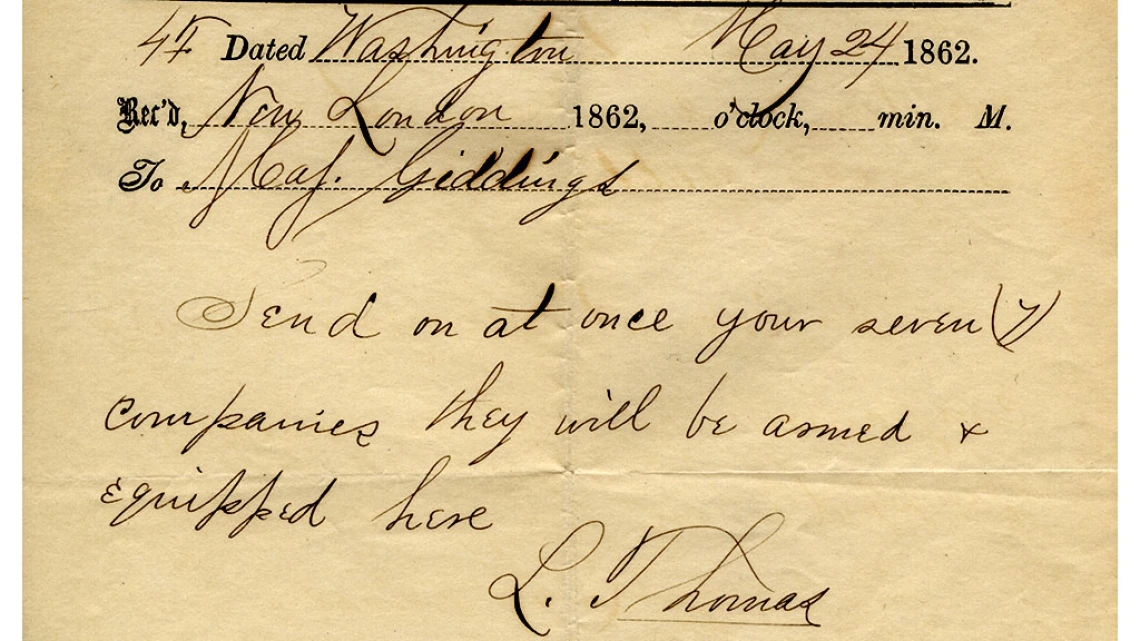 47 Dated Washington May 24 1862.
Rec'd, New London 1862, o'clock, min. M.
To Maj. Giddings
Send on at once your seven (7)
companies they will be armed &
equipped here
L. Thomas